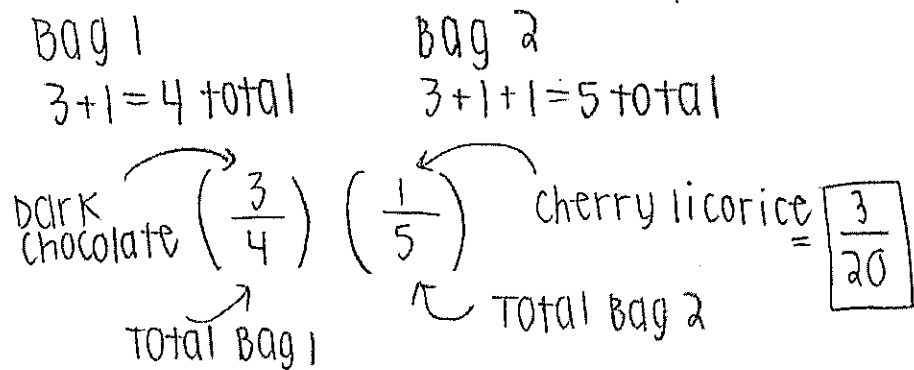 Bag 1 Bag 2
3+1=4 total 3+1+1=5 total
Dark chocolate (3/4) (1/5) cherry licorice = 3/20
Total Bag 1 Total Bag 2